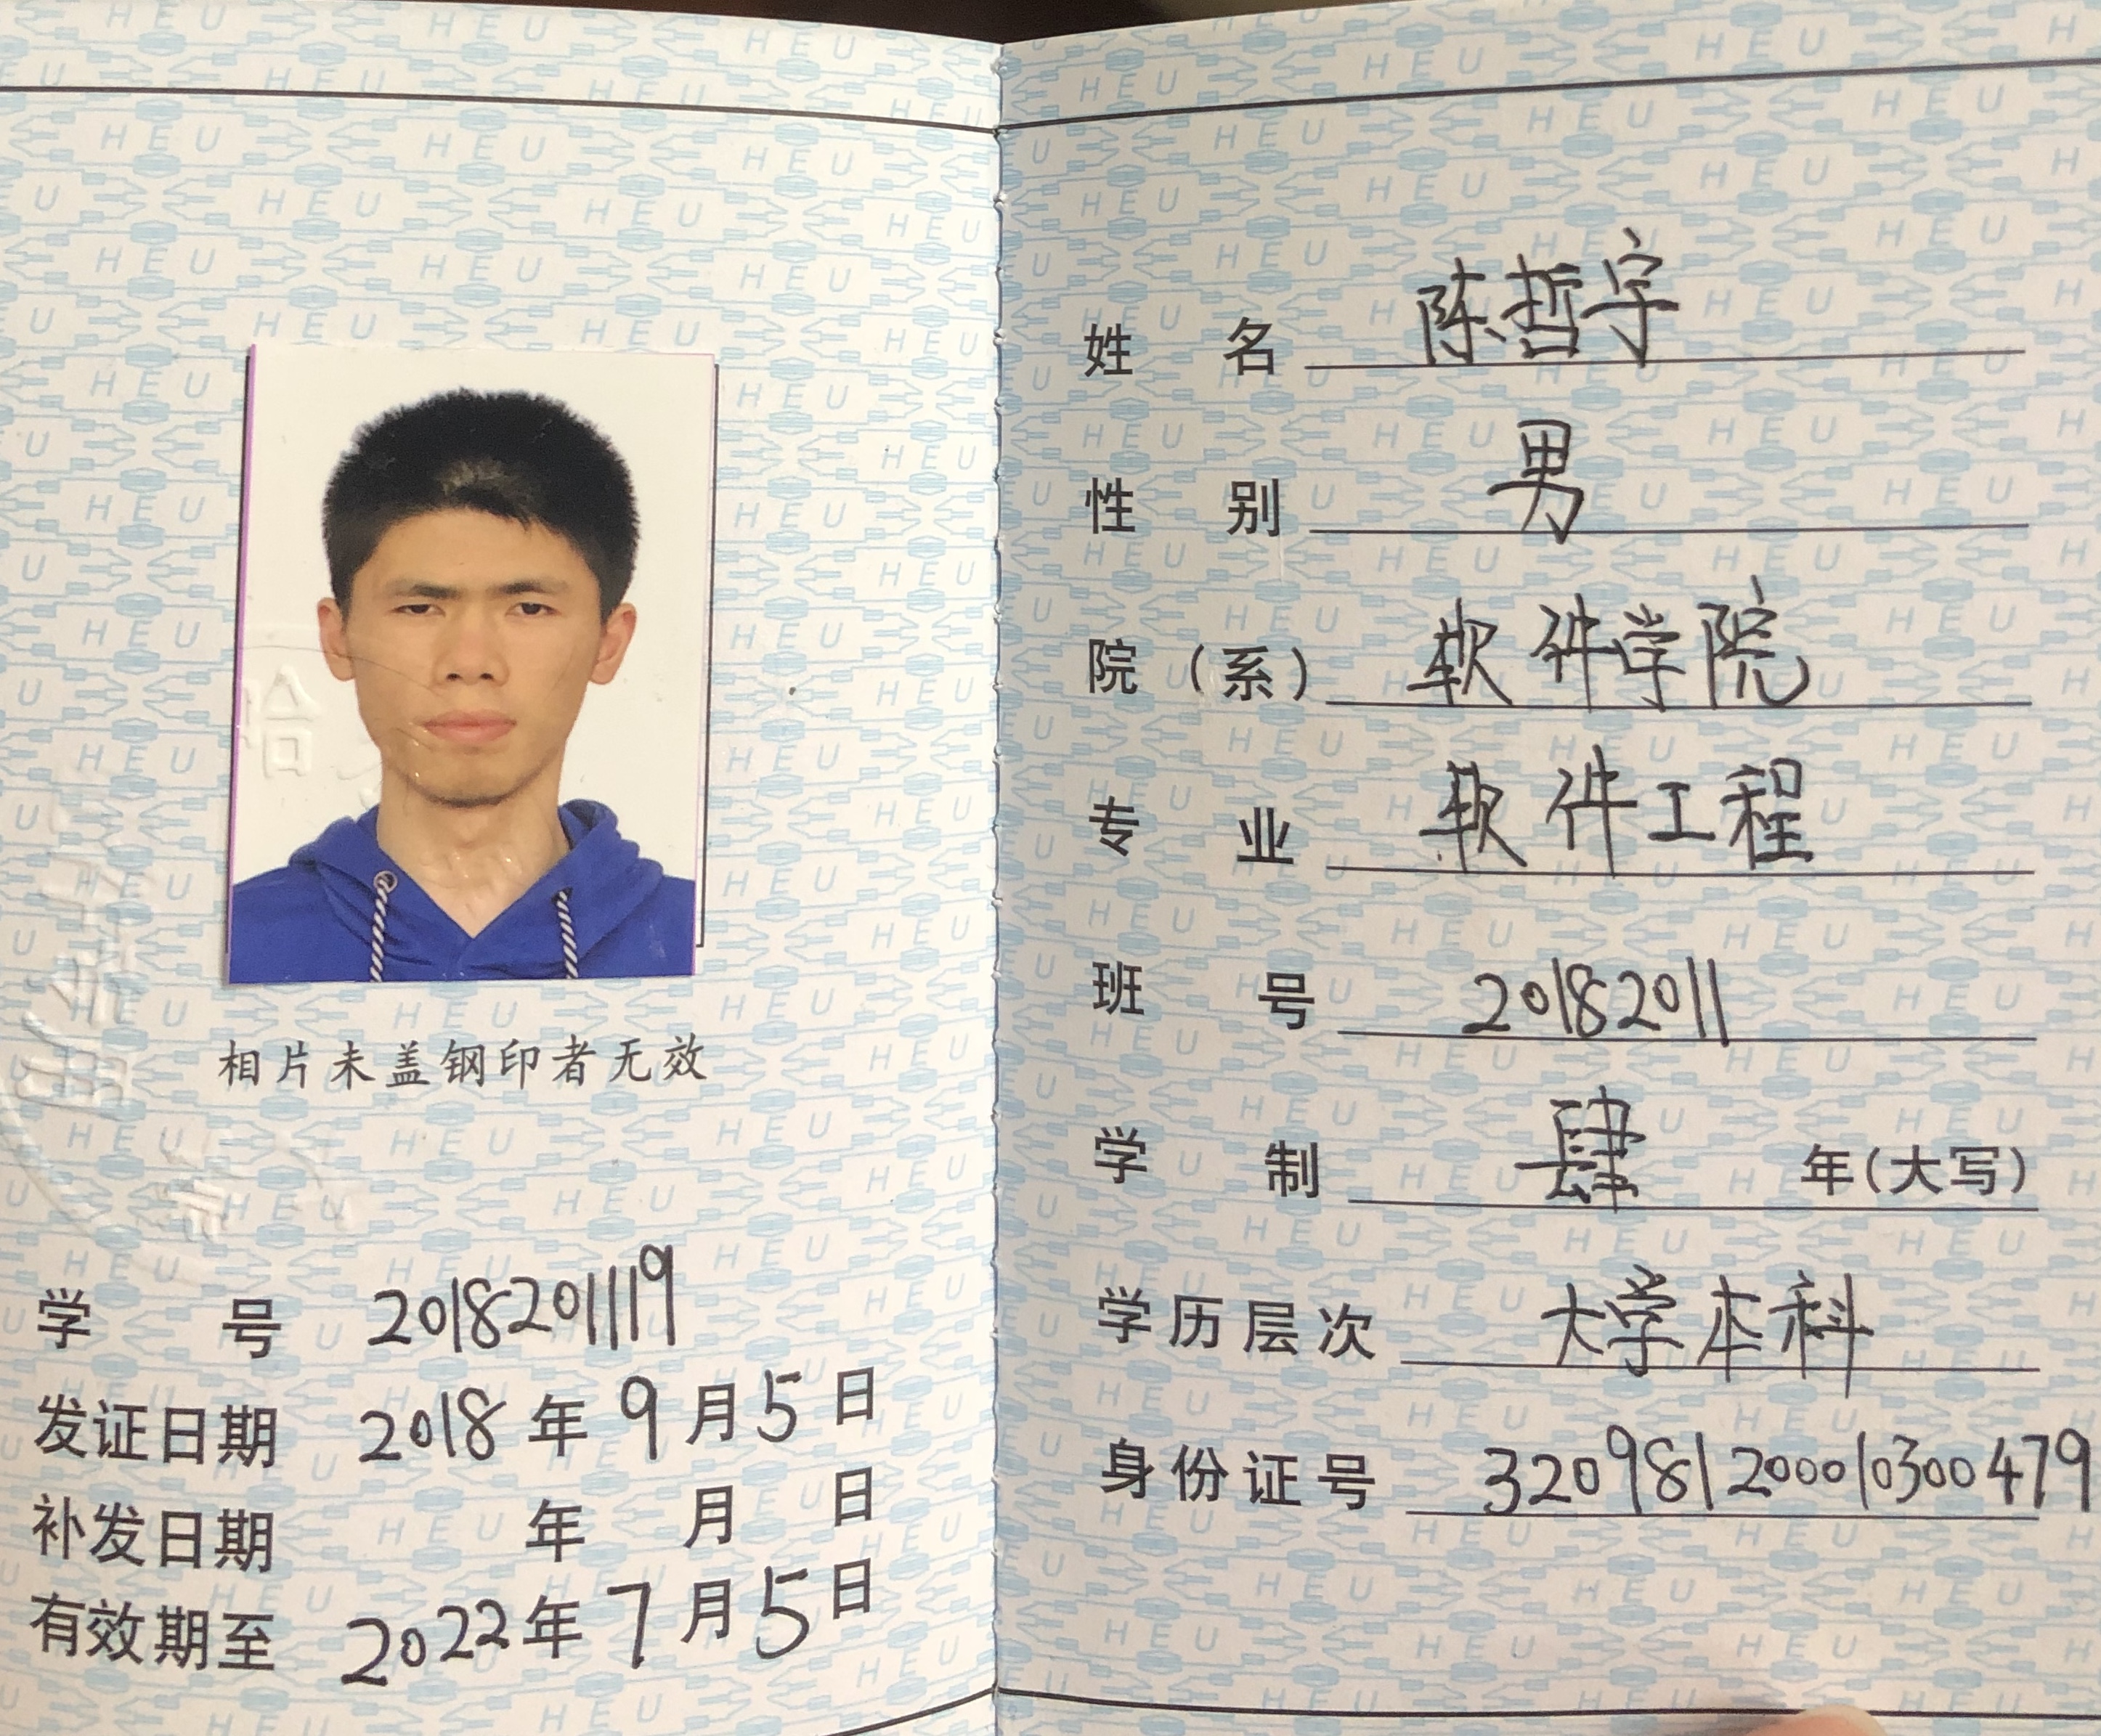 相片未盖钢印者无效
学号 2018201119
发证日期 2018年9月5日
补发日期 年 月 日
有效期至 2022年7月5日
姓名 陈哲宇
性别 男
院(系) 软件学院
专业 软件工程
班号 20182011
学制 肆 年(大写)
学历层次 大学本科
身份证号 320981200010300479